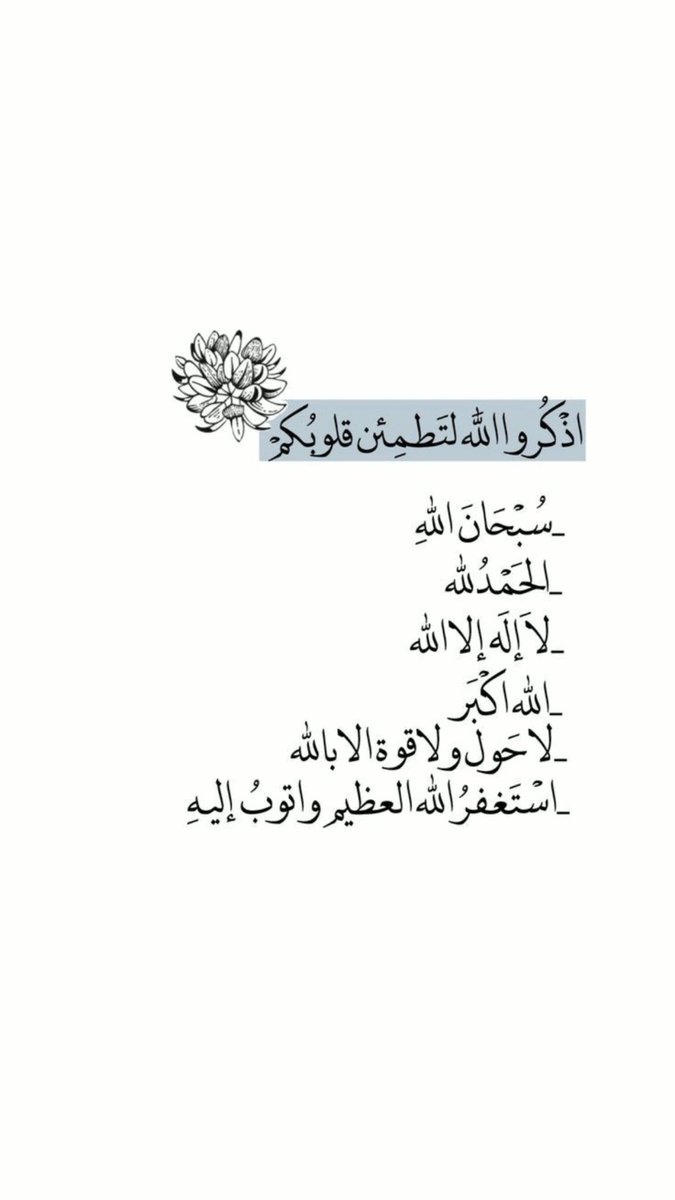 اذْكُروا الله لتَطمِئن قلوبُكمْ
_سُبْحَانَ اللهِ
_الحَمْدُلله
_لاَ إلَه إلا الله
_الله اكْبَر
_لا حَول ولا قوة الا بالله
_اسْتَغفرُ الله العظيم واتوبُ إليهِ